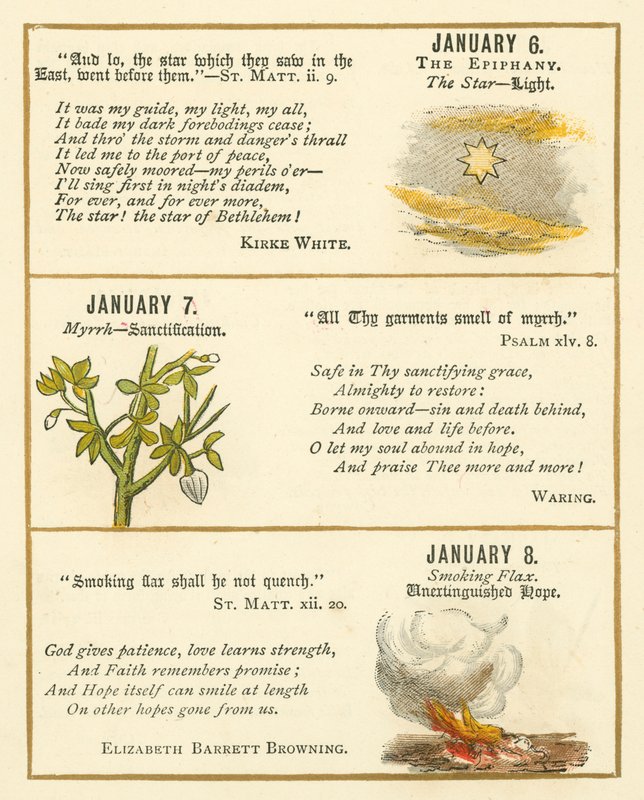 "And lo, the star which they saw in the
East, went before them."—St. Matt. ii. 9.
It was my guide, my light, my all,
It bade my dark forebodings cease;
And thro' the storm and danger's thrall
It led me to the port of peace,
Now safely moored—my perils o'er—
I'll sing first in night's diadem,
For ever, and for ever more,
The star! the star of Bethlehem!
Kirke White.
JANUARY 6.
The Epiphany.
The Star—Light.
JANUARY 7.
Myrrh—Sanctification.
"All Thy garments smell of myrrh."
Psalm xlv. 8.
Safe in Thy sanctifying grace,
Almighty to restore:
Borne onward—sin and death behind,
And love and life before.
O let my soul abound in hope,
And praise Thee more and more!
Waring.
"Smoking flax shall he not quench."
St. Matt. xii. 20.
God gives patience, love learns strength,
And Faith remembers promise;
And Hope itself can smile at length
On other hopes gone from us.
Elizabeth Barrett Browning.
JANUARY 8.
Smoking Flax.
Unextinguished Hope.